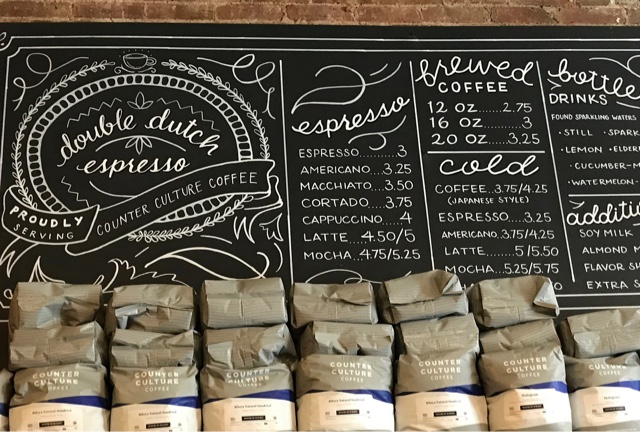 double dutch
espresso
PROUDLY
SERVING
COUNTER CULTURE COFFEE
espresso
ESPRESSO..........3
AMERICANO...3.25
MACCHIATO...3.50
CORTADO.....3.75
CAPPUCCINO....4
LATTE ..4.50/5
MOCHA..4.75/5.25
brewed
COFFEE
12 OZ.......2.75
16 OZ.........3
20 OZ.....3.25
cold
COFFEE..3.75/4.25
(JAPANESE STYLE)
ESPRESSO.....3.25
AMERICANO.3.75/4.25
LATTE.......5/5.50
MOCHA...5.25/5.75
DRINKS
FOUND SPARKLING WATERS
· STILL
· LEMON
· CUCUMBER-
· WATERMELON
SOY MILK
FLAVOR
EXTRA
COUNTER
CULTURE
COFFEE
COUNTER
CULTURE
COFFEE
COUNTER
CULTURE
COFFEE
COUNTER
CULTURE
COFFEE
COUNTER
CULTURE
COFFEE
COUNTER
CULTURE
COFFEE
COUNTER
CULTURE
COFFEE